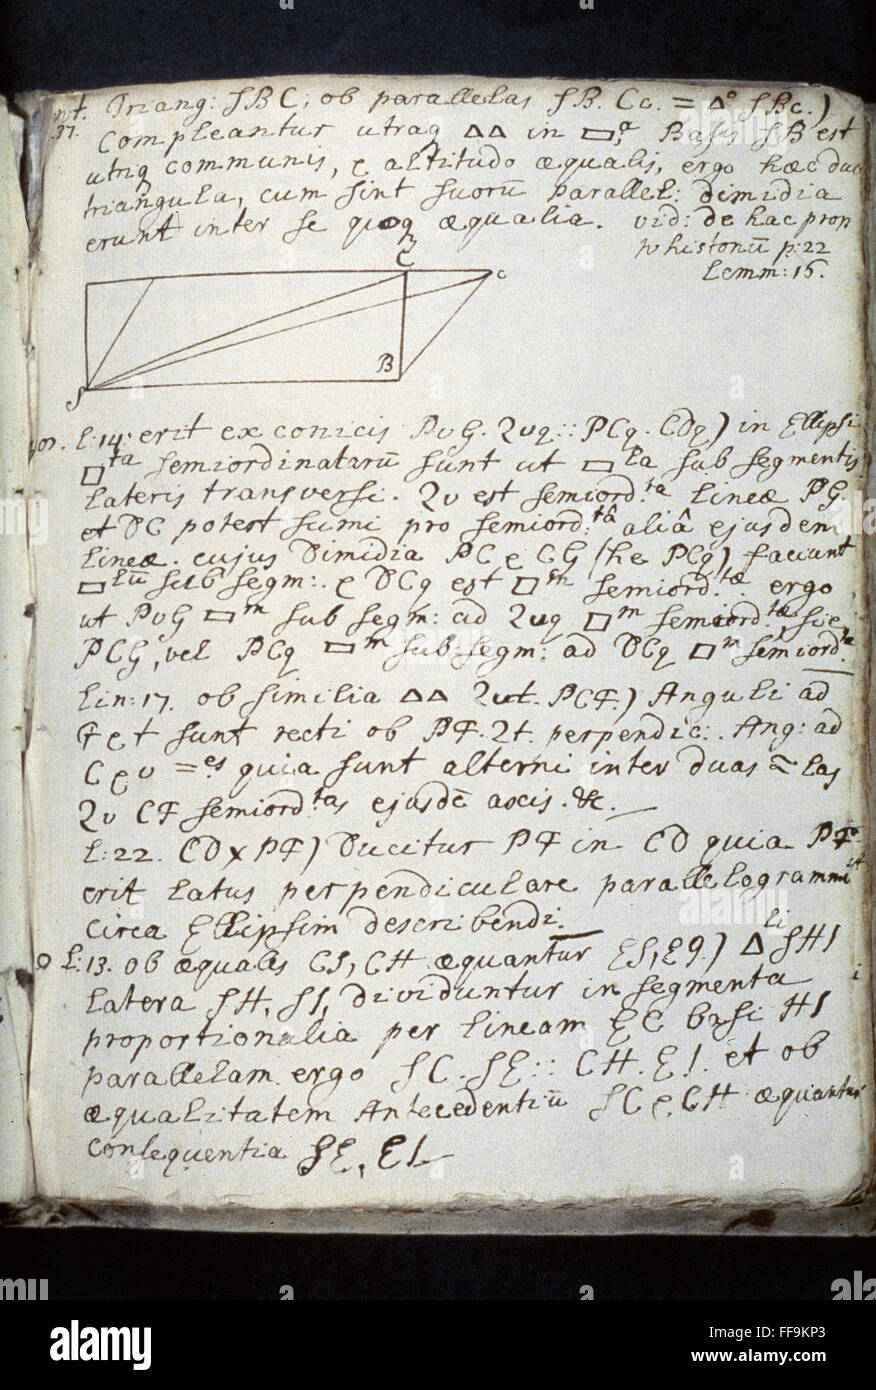 Triang: SBC; ob parallelas SB. Cc. = Δo SBc.)
37. Compleantur utraq ΔΔ in ▭a, Basis SB est
utriq communis, e altitudo æqualis, ergo hæc duo
triangula, cum sint suorū parallel: dimidia
erunt inter se quoq æqualia. vid: de hac prop
Whistonū p: 22
Lemm: 16.
C c
B
S
l: 14: erit ex conicis PvG. Qvq :: PCq. CDq) in Ellipsi
□ta semiordinatarū sunt ut ▭la sub segmentis
lateris transversi. Qv est semiord:ta lineæ PG.
et DC potest sumi pro semiord:tâ aliâ ejusdem
lineæ. cujus Dimidia PC e CG (he PCq) faciunt
▭lū sub segm:. e DCq est □m semiord:tæ. ergo
ut PvG ▭m sub segm: ad Qvq □m semiord:tæ sic
PCG, vel PCq ▭m sub: segm: ad DCq □m semiord:
lin: 17. ob similia ΔΔ Qvt. PCF.) Anguli ad
F e t sunt recti ob PF. Qt. perpendic:. Ang: ad
C e v =es quia sunt alterni inter duas las
Qv CF semiord:tas ejusdē axis. &c.
l: 22. CD x PF) Ducitur PF in CD quia PF
erit latus perpendiculare parallelogrammi
circa Ellipsim describendi.
l: 13. ob æqualis CS, CH æquantur ES, EI.) Δli SHI
latera SH, SI, dividuntur in segmenta
proportionalia per lineam EC basi HI
parallelam. ergo SC. SE :: CH. EI. et ob
æqualitatem Antecedentiū SC e CH æquantur
consequentia SE, EI
alamy stock photo
FF9KP3
www.alamy.com